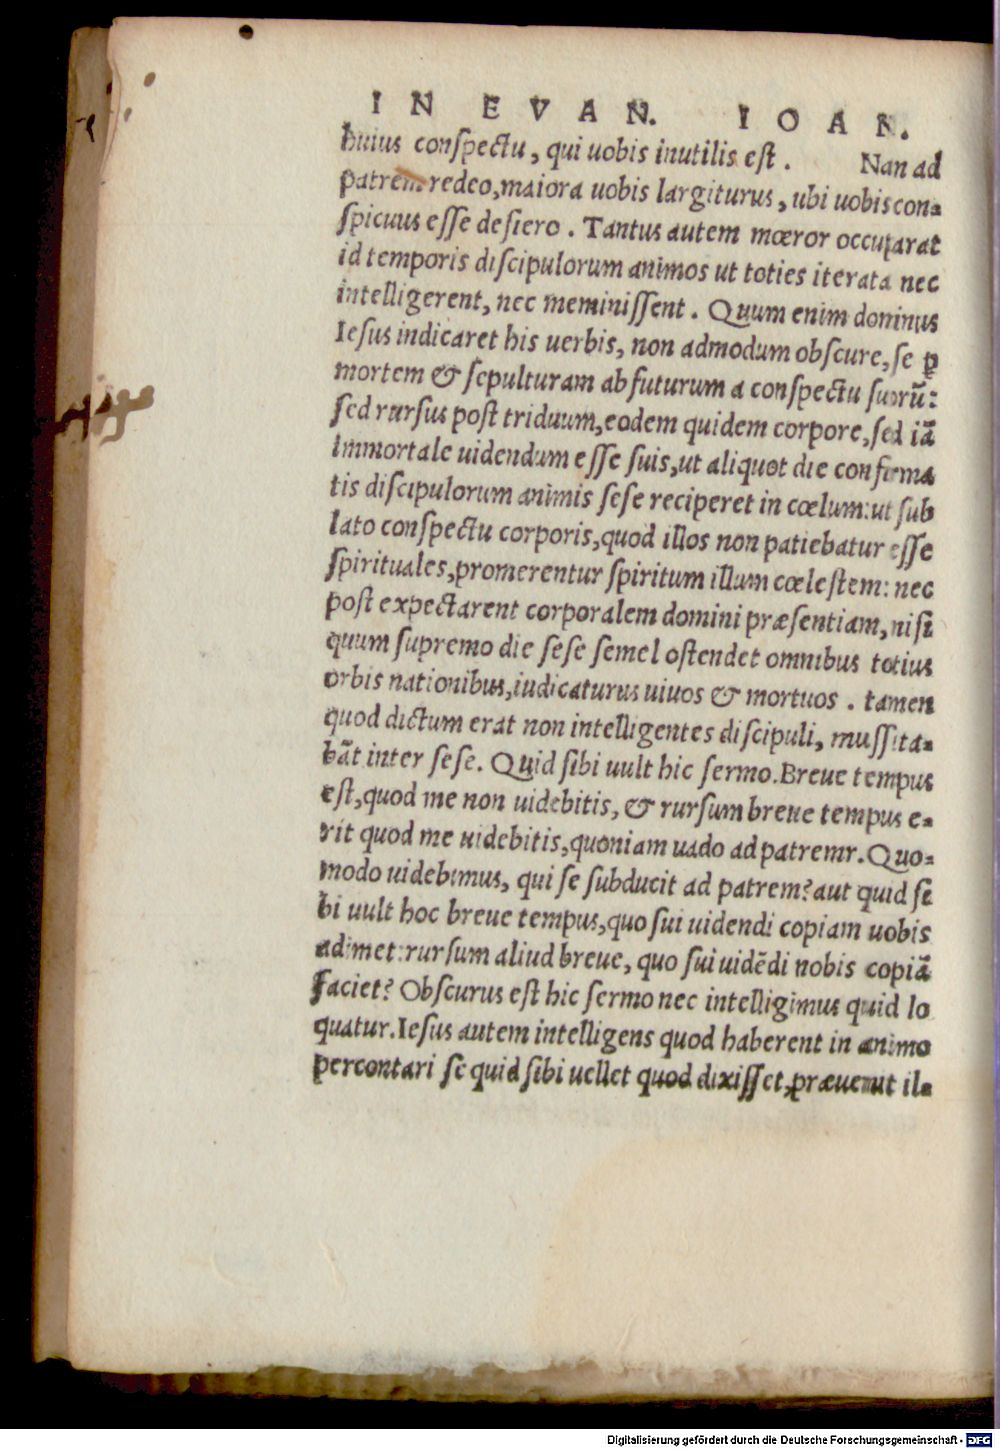 IN EVAN. IOAN.
huius conſpectu, qui uobis inutilis eſt. Nan ad
patrem redeo, maiora uobis largiturus, ubi uobis con-
ſpicuus eſſe deſiero. Tantus autem mœror occuparat
id temporis diſcipulorum animos ut toties iterata nec
intelligerent, nec meminiſſent. Quum enim dominus
Ieſus indicaret his uerbis, non admodum obſcure, ſe ꝑ
mortem & ſepulturam abfuturum a conſpectu ſuorũ:
ſed rurſus poſt triduum, eodem quidem corpore, ſed iã
immortale uidendum eſſe ſuis, ut aliquot die confirma
tis diſcipulorum animis ſeſe reciperet in cœlum: ut ſub
lato conſpectu corporis, quod illos non patiebatur eſſe
ſpirituales, promerentur ſpiritum illum cœleſtem: nec
poſt expectarent corporalem domini præſentiam, niſi
quum ſupremo die ſeſe ſemel oſtendet omnibus totius
orbis nationibus, iudicaturus uiuos & mortuos. tamen
quod dictum erat non intelligentes diſcipuli, muſſita-
bãt inter ſeſe. Quid ſibi uult hic ſermo. Breue tempus
eſt, quod me non uidebitis, & rurſum breue tempus e-
rit quod me uidebitis, quoniam uado ad patremr. Quo-
modo uidebimus, qui ſe ſubducit ad patrem? aut quid ſi
bi uult hoc breue tempus, quo ſui uidendi copiam uobis
adimet: rurſum aliud breue, quo ſui uidẽdi nobis copiã
faciet? Obſcurus eſt hic ſermo nec intelligimus quid lo
quatur. Ieſus autem intelligens quod haberent in animo
percontari ſe quid ſibi uellet quod dixiſſet, præuenit il-
Digitalisierung gefördert durch die Deutsche Forschungsgemeinschaft - DFG